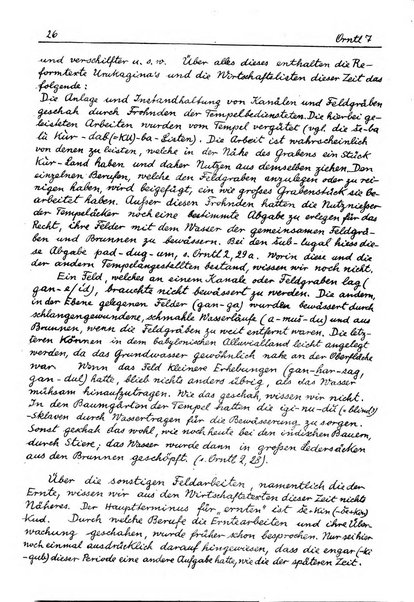 26 Orntl 7
und verschilfter u. s. w. Über alles dieses enthalten die Re-
formtexte Urukagina's und die Wirtschaftslisten dieser Zeit das
folgende:
Die Anlage und Instandhaltung von Kanälen und Feldgräben
geschah durch Frohnden der Tempelbediensteten. Die hierbei ge-
leisteten Arbeiten wurden vom Tempel vergütet (vgl die šu-ba
lú Kur-dab(=KU)-ba-Listen). Die Arbeit ist wahrscheinlich
von denen zu leisten, welche in der Nähe des Grabens ein Stück
Kur-Land haben und daher Nutzen aus demselben ziehen. Den
einzelnen Berufen, welche den Feldgraben anzulegen oder zu rei-
nigen haben, wird beigefügt, ein wie großes Grabenstück sie be-
arbeitet haben. Außer diesen Frohnden hatten die Nutznießer
der Tempeläcker noch eine bestimmte Abgabe zu erlegen für das
Recht, ihre Felder mit dem Wasser der gemeinsamen Feldgrä-
ben und Brunnen zu bewässern. Bei den šub-lugal hiess die-
se Abgabe pad-dug-um, s. Orntl 2, 29 a. Worin diese und die
der andern Tempelangestellten bestand, wissen wir noch nicht.
Ein Feld, welches an einem Kanale oder Feldgraben lag (
gan-e/id), brauchte nicht bewässert zu werden. Die andern,
in der Ebene gelegenen Felder (gan-ga) wurden bewässert durch
schlangengewundene, schmahle Wasserläufe (a-muš-du) und aus
Brunnen, wenn die Feldgräben zu weit entfernt waren. Die letz-
teren können in dem babylonischen Alluvialland leicht angelegt
werden, da das Grundwasser gewöhnlich nahe an der Oberfläche
war. Wenn das Feld kleinere Erhebungen (gan-ḫur-sag,
gan-dul) hatte, blieb nichts anders übrig, als das Wasser
mühsam hinaufzutragen. Wie das geschah, wissen wir nicht.
In den Baumgärten der Tempel hatten die igi-nu-dú (= blind)
-sklaven durch Wassertragen für die Bewässerung zu sorgen.
Sonst geschah das wohl, wie noch heute bei den indischen Bauern,
durch Stiere; das Wasser wurde dann in großen Ledersäcken
aus den Brunnen geschöpft. (s. Orntl 2, 23).
Über die sonstigen Feldarbeiten, namentlich die der
Ernte, wissen wir aus den Wirtschaftstexten dieser Zeit nichts
Näheres. Der Hauptterminus für „ernten“ ist še-kin (-še-kin)
Kud. Durch welche Berufe die Erntearbeiten und ihre Über-
wachung geschahen, wurde früher schon besprochen. Nur sei hier
noch einmal ausdrücklich darauf hingewiesen, dass die engar (-ki
-gub) dieser Periode eine andere Aufgabe hatte, wie der späteren Zeit.